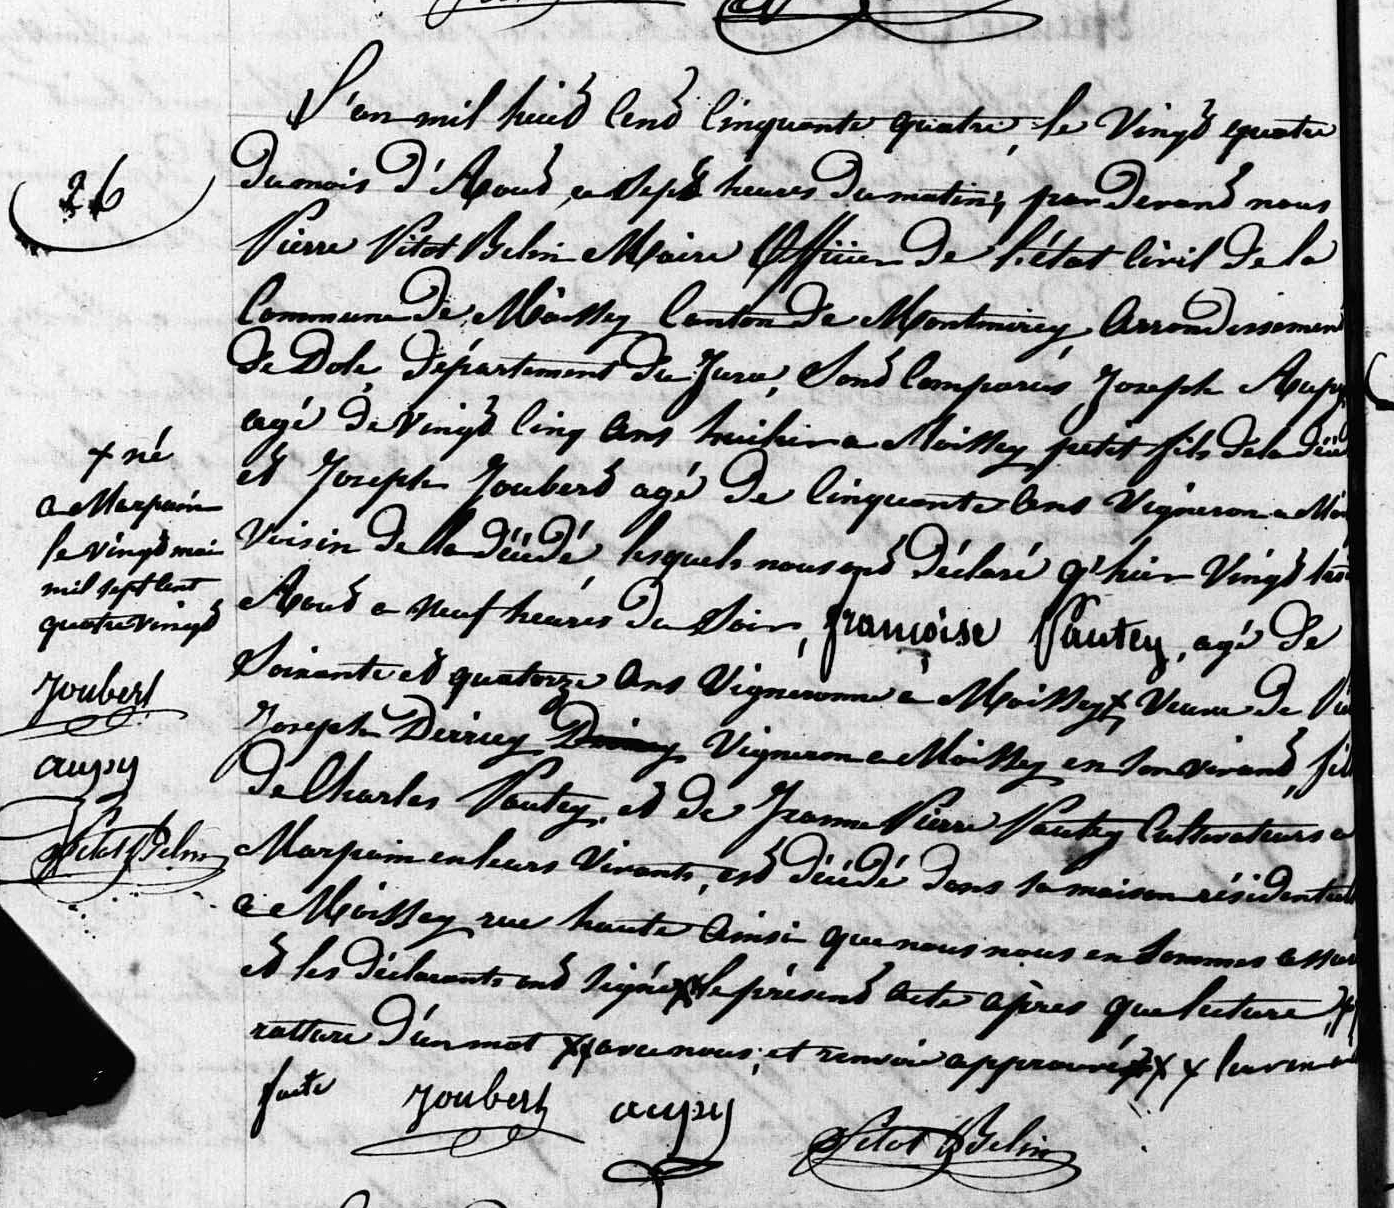 L'an mil huit Cent Cinquante quatre, le Vingt quatre
Du mois D'Aout, a Sept heures Du matin, par Devant nous
Pierre Vitot Belin Maire Officier De l'état Civil De la
Commune De Moissey Canton De Montmirey Arrondissement
De Dole, Département Du Jura, Sont Comparus Joseph Aupy
agé De Vingt Cinq Ans huilier a Moissey petit fils De la Décé
et Joseph Joubert agé De Cinquante Ans Vigneron a Moi
Voisin De la Décédé lesquels nous ont Déclaré q'hier Vingt trois
Aout a neuf heures Du Soir, françoise Pautey, agé De
Soixante et quatorze Ans Vigneronne a Moissey x Veuve De
Joseph Derriey Vigneron a Moissey en Son vivant, fil
De Charles Pautey, et De Jeanne Pierre Pautey Cultivateurs a
Marpain en leurs Vivants, est Décédé Dans Sa maison résidentiel
a Moissey rue haute Ainsi que nous nous en Sommes assur
et les Déclarants ont Signé xx le présent acte après que lecture
rature D'un mot xx avec nous, et renvoi approuvé xx x leur en a
faite
Joubert aupy Vitot Belin
26
x né
a Marpain
le vingt mai
mil sept Cent
quatre vingt
Joubert
aupy
Vitot Belin